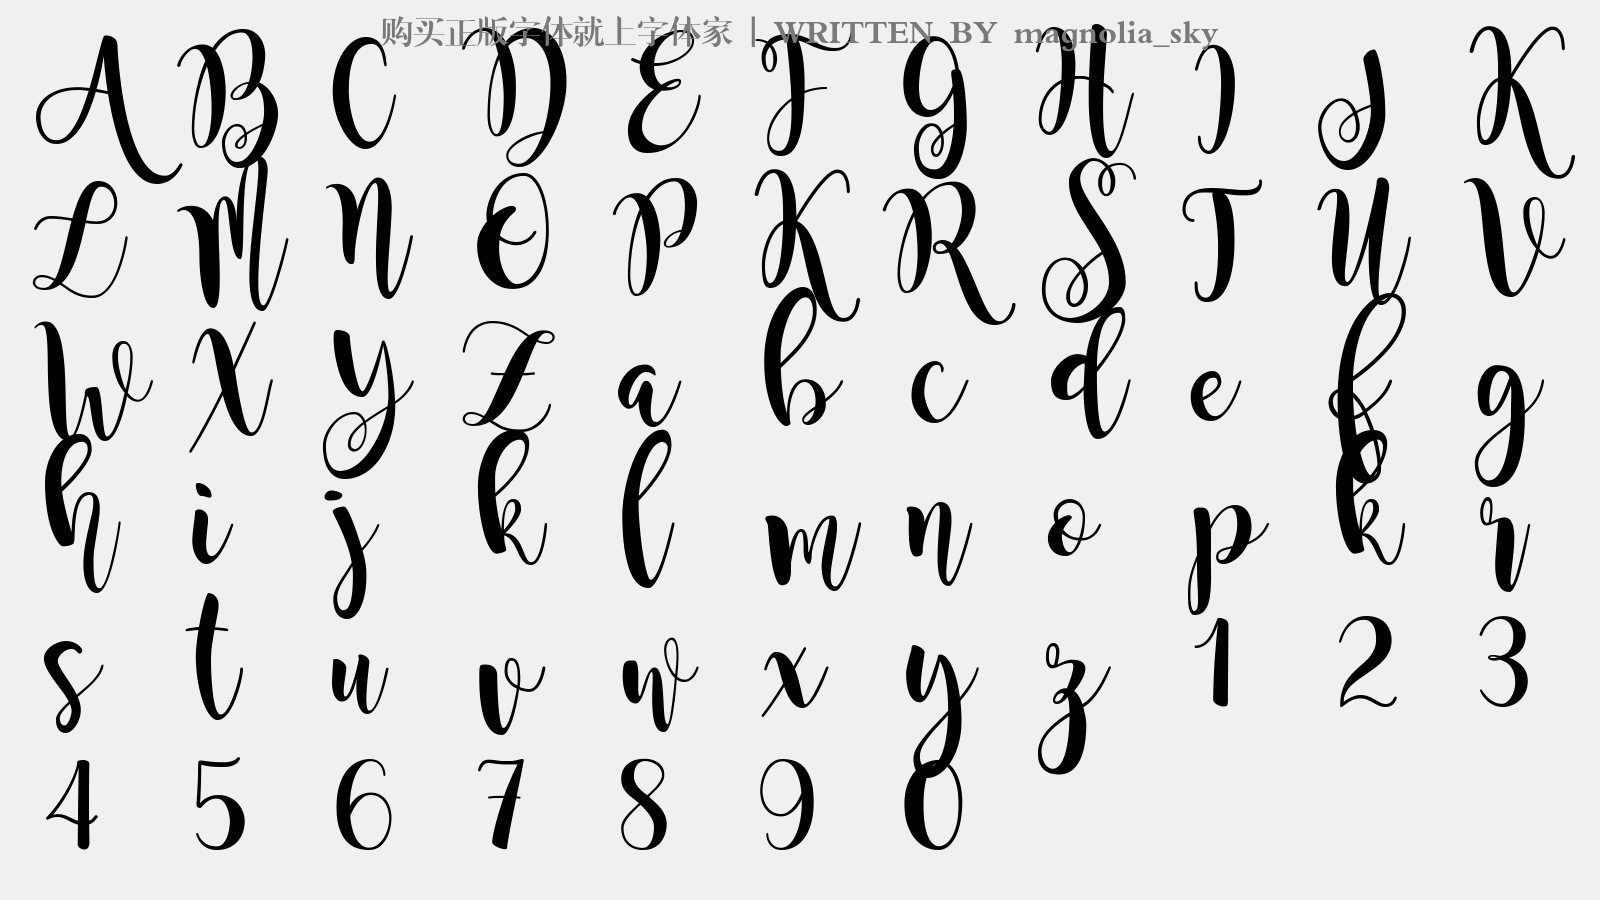 购买正版字体就上字体家 | WRITTEN BY magnolia_sky
A B C D E F g H I J K
L M n O P K R S T U V
W X y Z a b c d e f g
h i j k l m n o p k r
s t u v w x y z 1 2 3
4 5 6 7 8 9 0